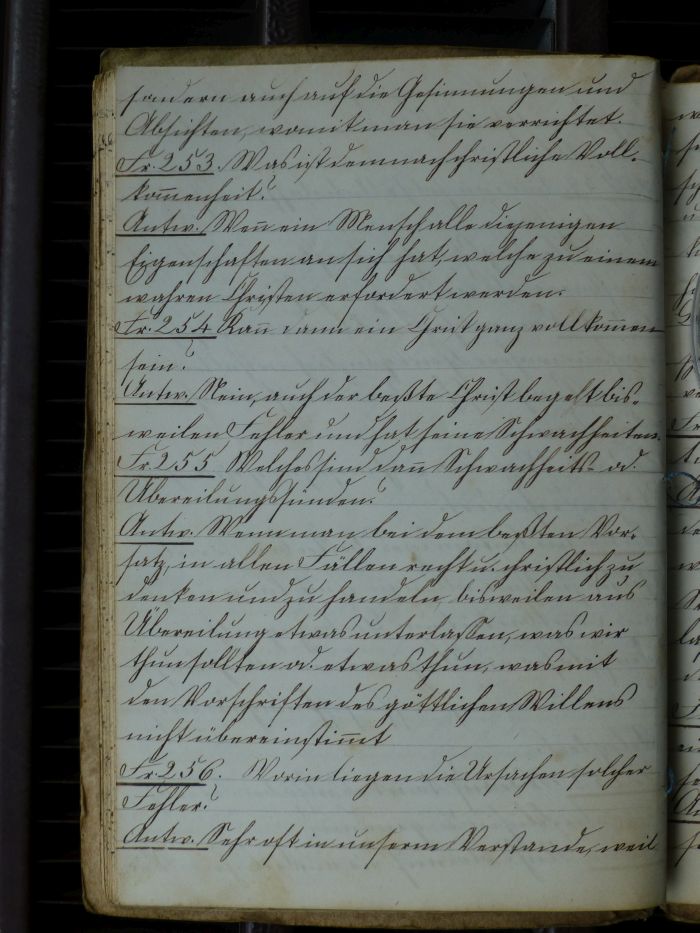 sondern auch auf die Gesinnungen und
Absichten, womit man sie verrichtet.
Fr. 253. Was ist demnach christliche Voll-
kom̄enheit?
Antw. Wen̄ ein Mensch alle diejenigen
Eigenschaften an sich hat, welche zu einem
wahren Christen erfordert werden.
Fr. 254 Kan̄ ein Christ ganz vollkom̄en
sein?
Antw. Nein, auch der beßte Christ begeht bis-
weilen Fehler und hat seine Schwachheiten.
Fr. 255 Welches sind dan̄ Schwachheits- od.
Übereilungssünden?
Antw. Wenn man bei dem beßten Vor-
satz, in allen Fällen recht u. christlich zu
denken und zu handeln, bisweilen aus
Übereilung etwas unterlassen, was wir
thun sollten od. etwas thun, was mit
den Vorschriften des göttlichen Willens
nicht übereinstim̄t
Fr. 256. Worin liegen die Ursachen solcher
Fehler?
Antw. Sehr oft in unserm Verstande, weil